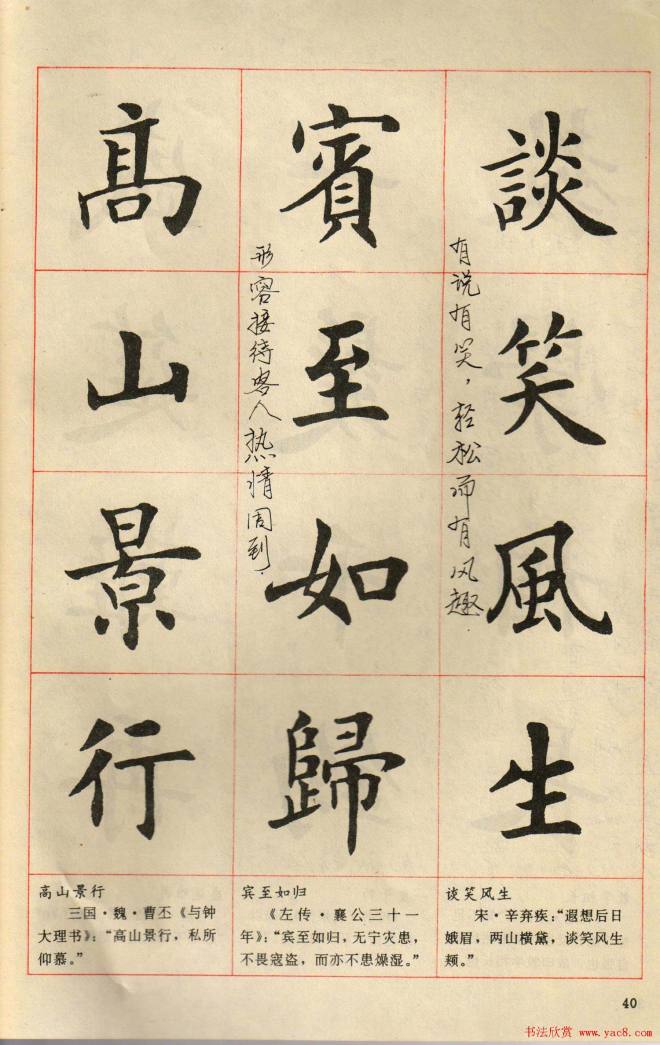 談笑風生
有说有笑，轻松而有风趣.
賓至如歸
形容接待客人热情周到.
高山景行
高山景行
三国·魏·曹丕《与钟
大理书》：“高山景行，私所
仰慕。”
宾至如归
《左传·襄公三十一
年》：“宾至如归，无宁灾患，
不畏寇盗，而亦不患燥湿。”
谈笑风生
宋·辛弃疾：“遐想后日
娥眉，两山横黛，谈笑风生
颊。”
40
书法欣赏 www.yac8.com